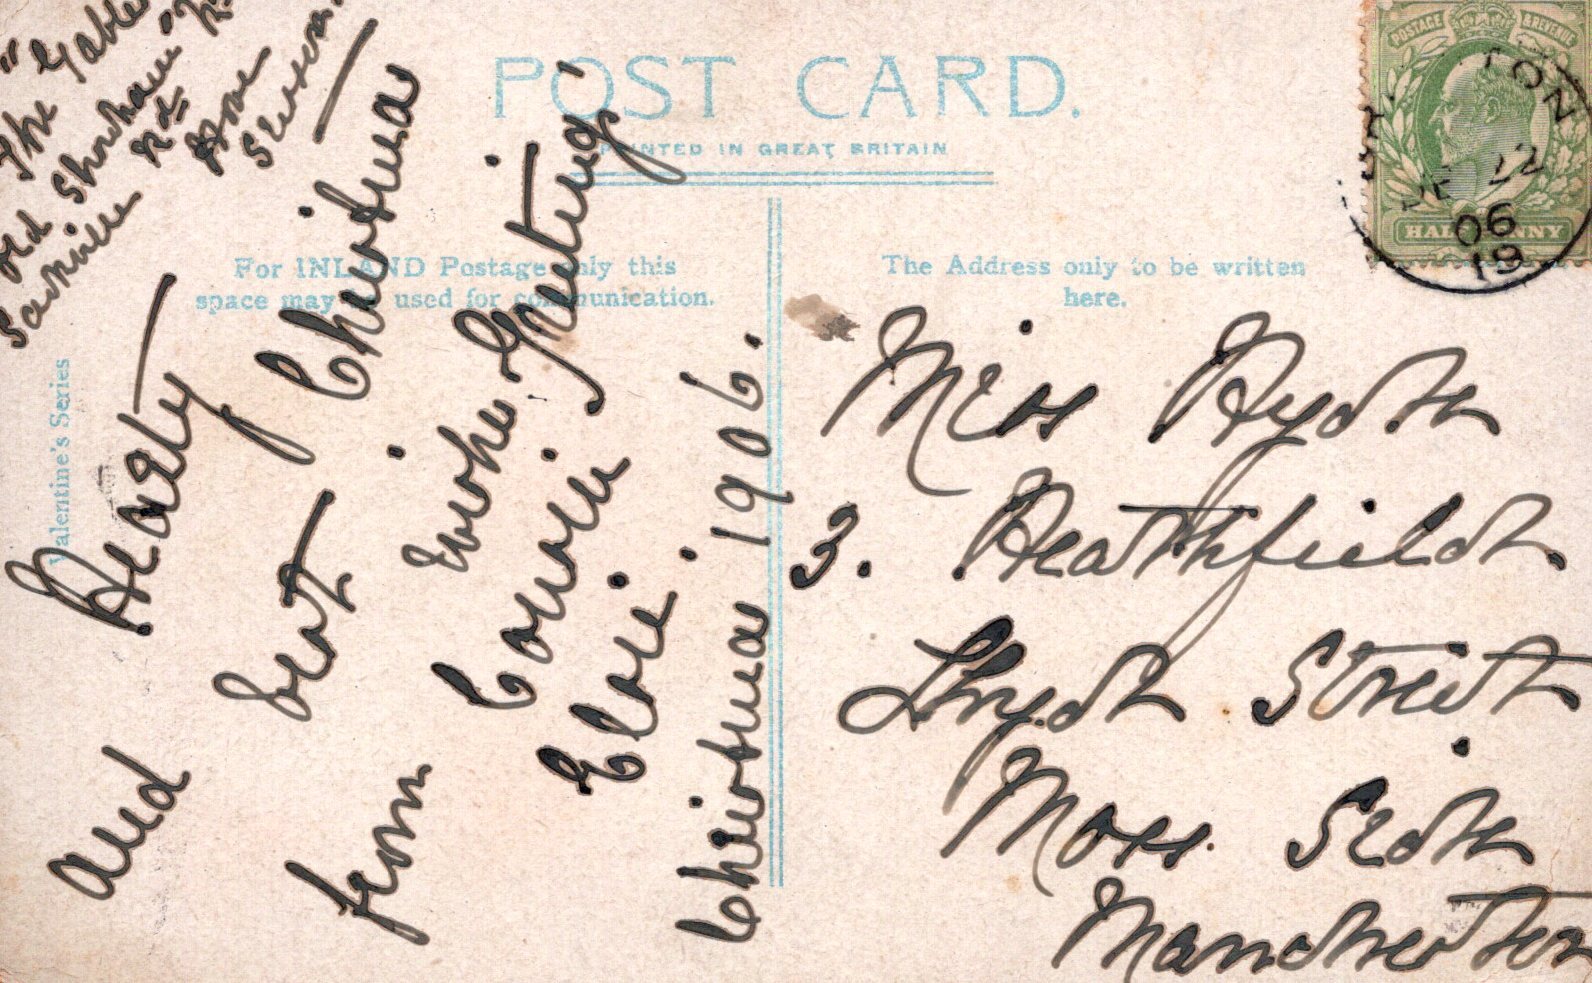 "The Gables"
Old Shoreham Rd
Sackville Rd
Hove
Sussex.
POST CARD.
PRINTED IN GREAT BRITAIN
For INLAND Postage only this
space may be used for communication.
The Address only to be written
here.
Valentine's Series
POSTAGE & REVENUE
HALFPENNY
TON
DE 22
06
19
Hearty Christmas
and best Greetings
from
Cousin
Elsie.
Christmas 1906.
Miss Ryder
3. Heathfield
Lloyd Street
Moss Side
Manchester